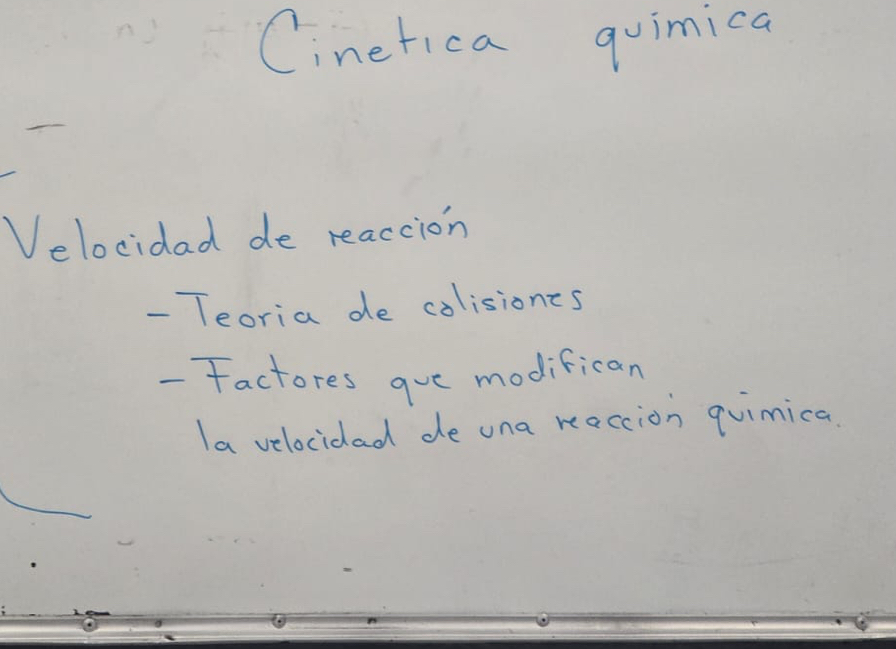 Cinetica química
Velocidad de reacción
- Teoria de colisiones
- Factores que modifican
la velocidad de una reacción química.